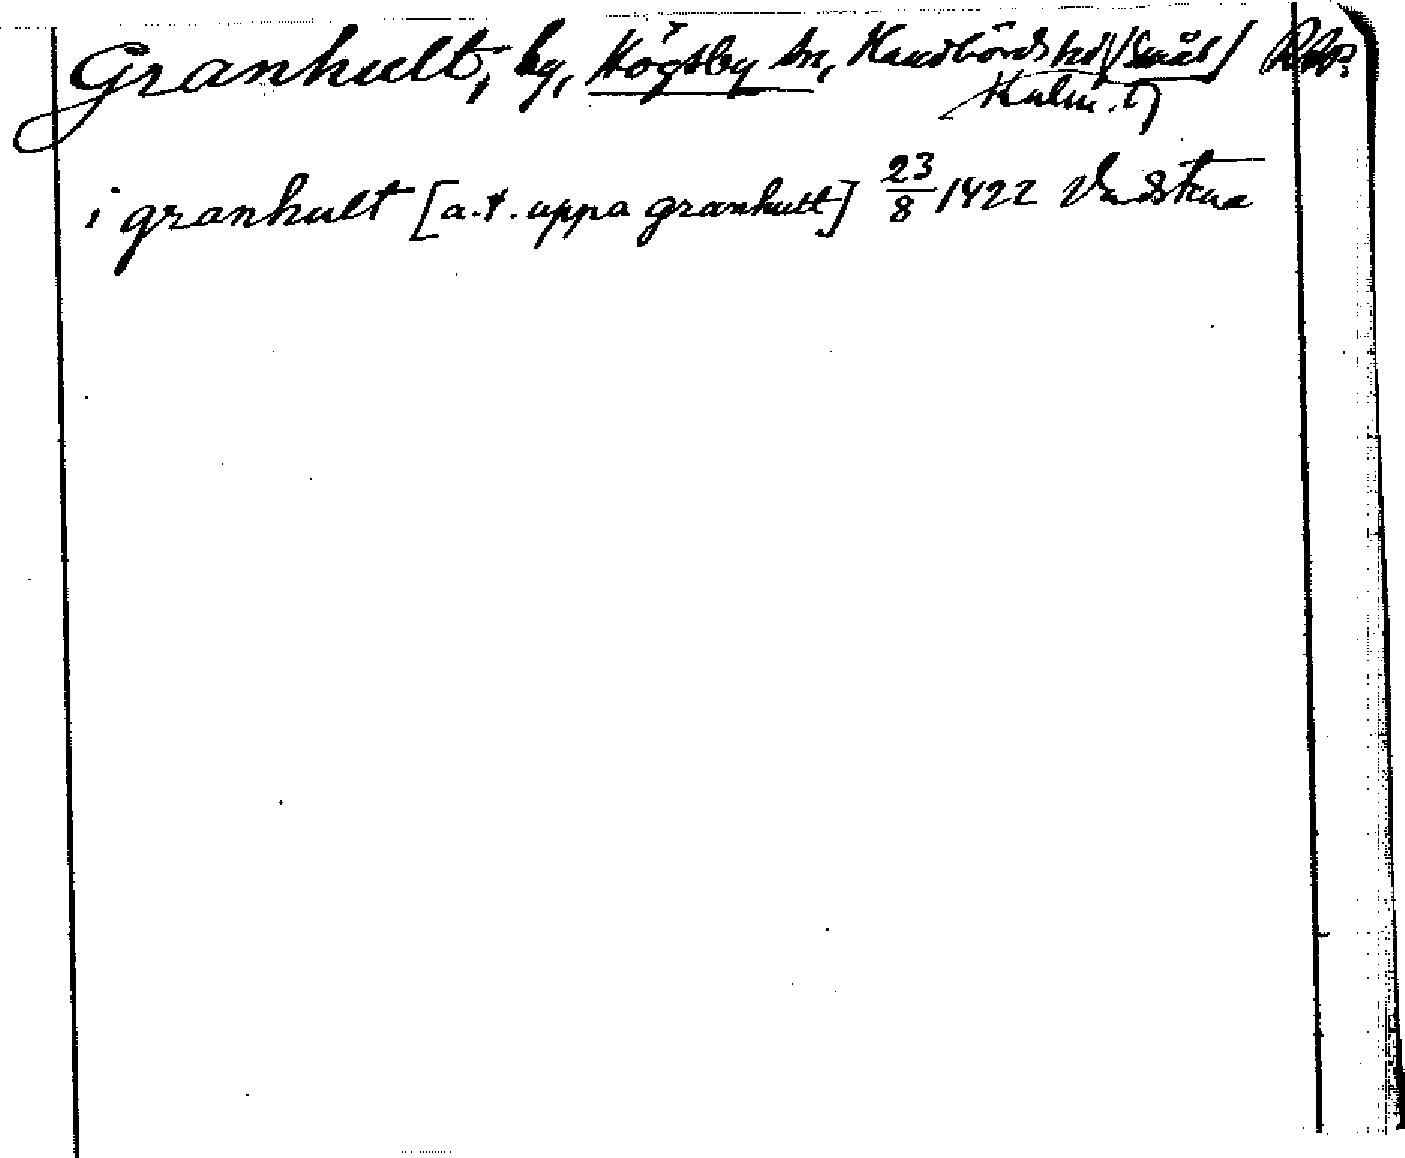 Granhult, by, Högsby sn, Handbörds hd (Smål)
Kalm. l)
i granhult [a. t. uppa granhult] 23/8 1422